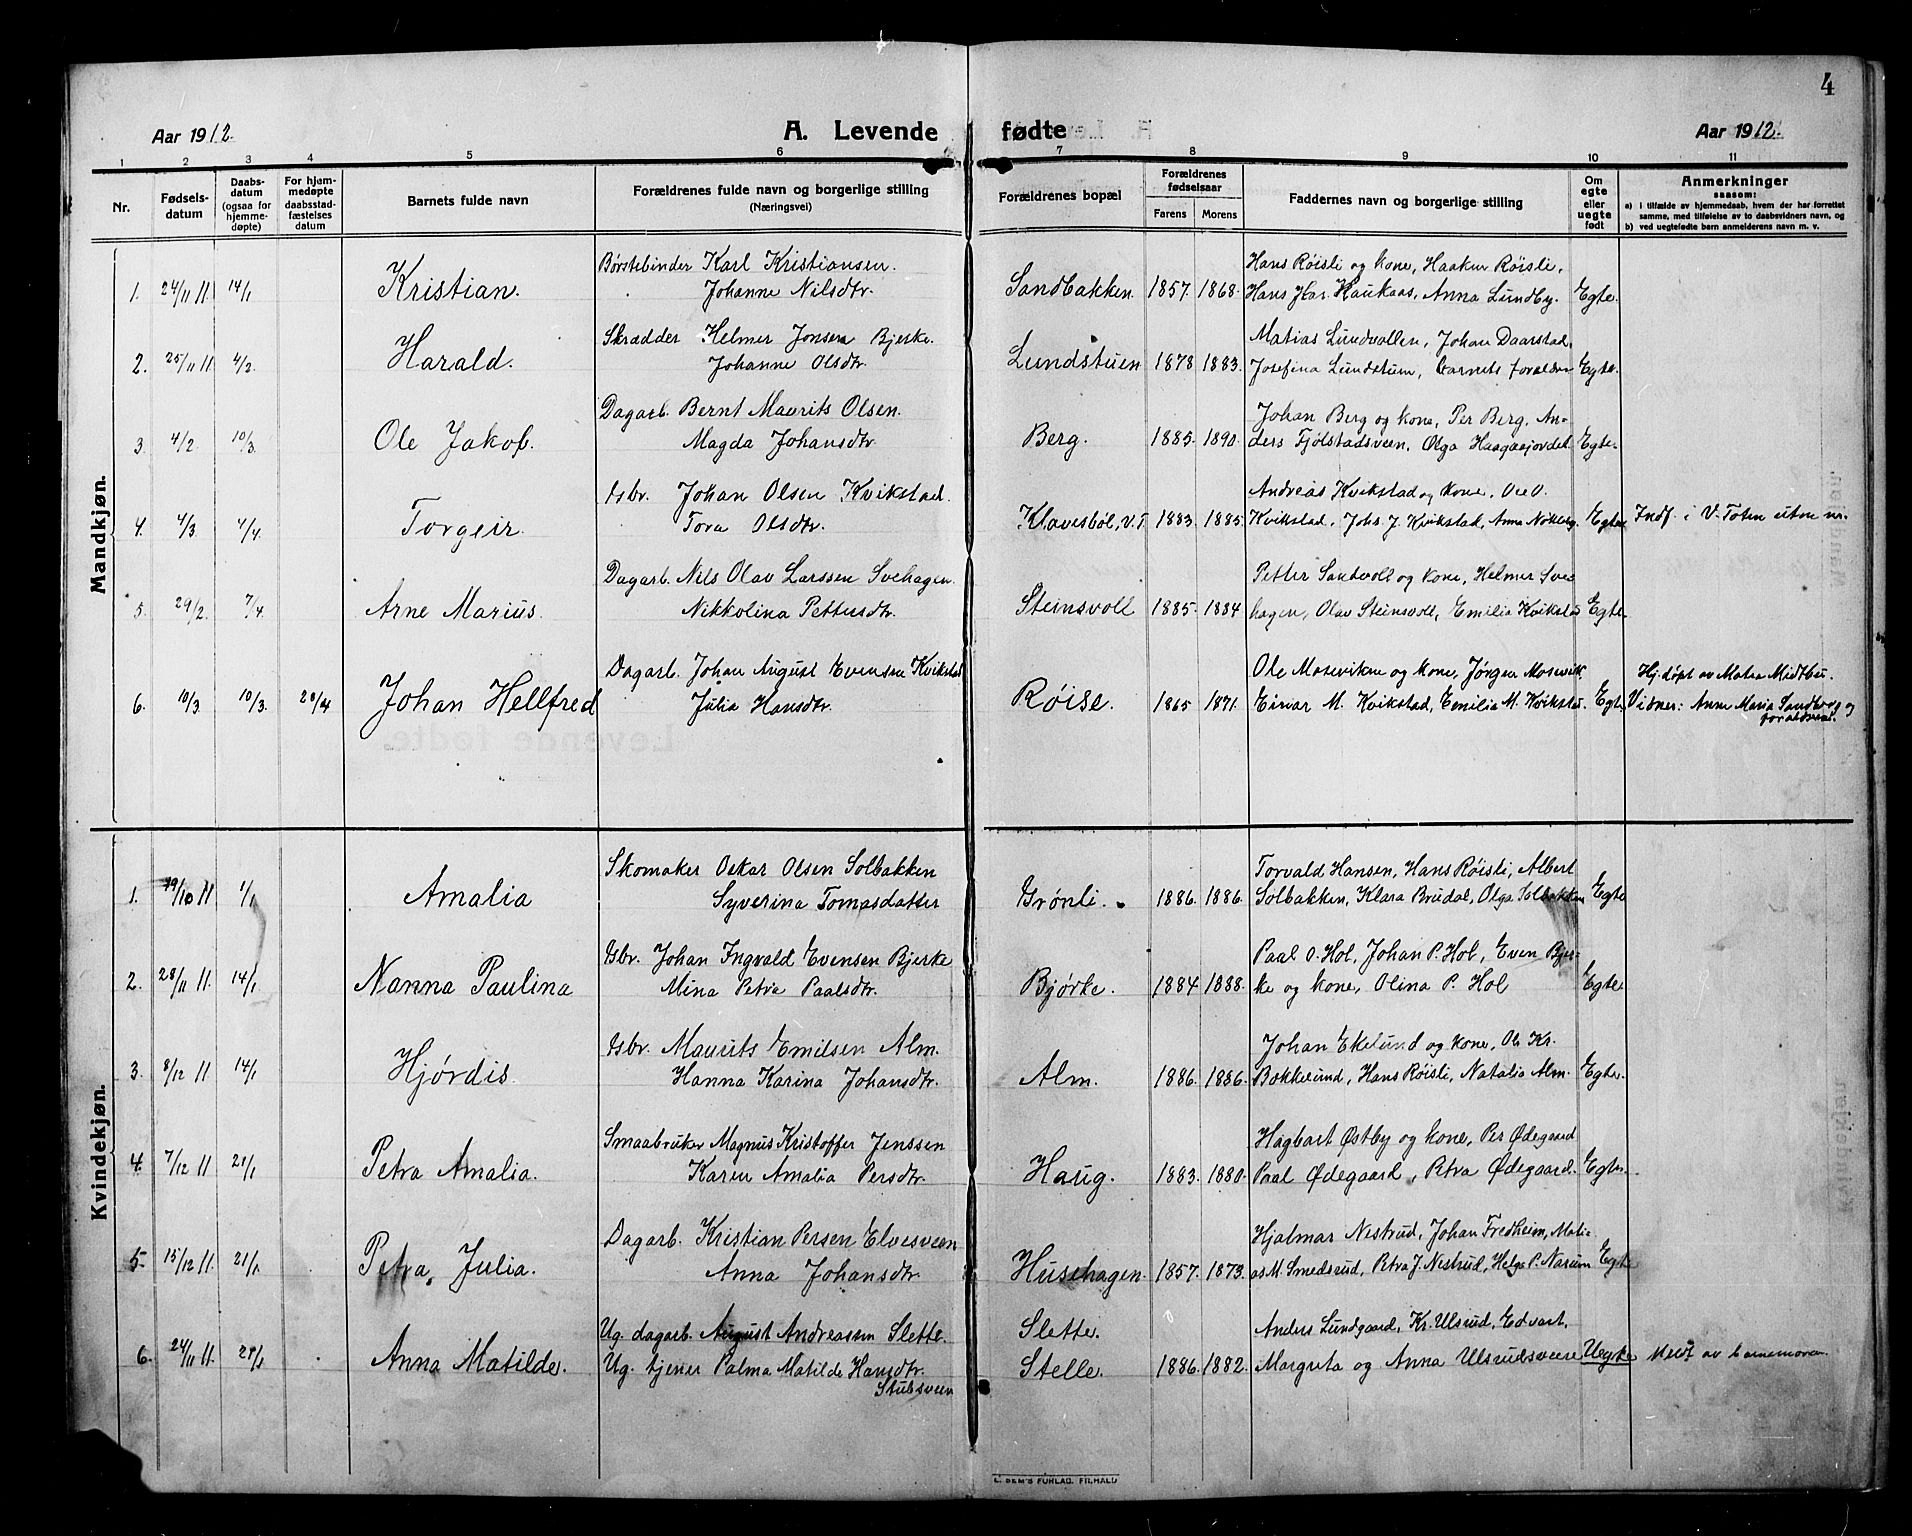 4
Aar 1912.
A. Levende fødte
Aar 1912.
1 2 3 4 5 6 7 8 9 10 11
Nr.
Fødsels-
datum
Daabs-
datum
(ogsaa for
hjemme-
døpte)
For hjem-
medøpte
daabsstad-
fæstelses
datum
Barnets fulde navn
Forældrenes fulde navn og borgerlige stilling
(Næringsvei)
Forældrenes bopæl
Forældrenes
fødselsaar
Farens Morens
Faddernes navn og borgerlige stilling
Om
egte
eller
uegte
født
Anmerkninger
saasom:
a) i tilfælde av hjemmedaab, hvem der har forrettet
samme, med tilføielse av to daabsvidners navn, og
b) ved uegtefødte barn anmelderens navn m. v.
Mandkjøn.
Børstebinder Karl Kristiansen. Hans Røisli og kone, Haakon Røisli,
1. 24/11 11. 14/1 Kristian. Johanne Nilsdtr. Sandbakken. 1857. 1868. Hans Kaukaas, Anna Lundby. Egte.
Skrædder Helmer Jonsen Bjerke. Matias Lundvollen, Johan Daarstad,
2. 25/11 11. 4/2. Harald. Johanne Olsdtr. Lundstuen 1878 1883. Josefina Lundstuen, barnets forældre Egte.
Dagarb. Bernt Maurits Olsen. Johan Berg og kone, Per Berg, An-
3. 4/2. 10/3. Ole Jakob. Magda Johansdtr. Berg. 1885. 1890. ders Fjølstadsveen, Olga Haagaajordet Egte.
Gsbr. Johan Olsen Kvikstad. Andreas Kvikstad og kone, Ole O.
4. 4/3. 4/4. Torgeir. Tora Olsdtr. Klavesbøl, V.T. 1883. 1885. Kvikstad, Johs. J. Kvikstad, Anna Egte Indf. i V. Toten uten nr.
Dagarb. Nils Olav Larssen Svehagen. Petter Sandvoll og kone, Helmer Sve-
5. 29/2. 7/4. Arne Marius. Nikkolina Pettersdtr. Steinsvoll 1885. 1884 hagen, Olav Steinsvoll, Emilia Kvikstad Egte.
Dagarb. Johan August Evensen Kvikstad Ole Mosevikne og kone, Jørgen Mosevik. Hj. døpt av Midtbu.
6. 10/3. 10/3. 20/4 Johan Hellfred Julia Hansdtr. Røise. 1865 1871. Einar M. Kvikstad, Emilia M. Kvikstad. Egte Vidner: Anne Maria Sandberg og
forældrene.
Kvindekjøn.
Skomaker Oskar Olsen Solbakken Torvald Hansen, Hans Røisli, Albert
1. 19/10 11 1/1 Amalia Syverina Tomasdatter Grønli. 1886. 1886. Solbakken, Klara Brudal, Olga Solbakken Egte
Gsbr. Johan Ingvald Evensen Bjerke Paal O. Hol, Johan P. Hol, Even Bjer-
2. 28/11 11. 14/1 Nanna Paulina Mina Petra Paalsdtr. Bjørke. 1884 1888. ke og kone, Olina P. Hol Egte
Gsbr. Maurits Emilsen Alm. Johan Ekelund og kone, Ole Kr.
3. 8/12 11 14/1 Hjørdis. Hanna Karina Johansdtr. Alm. 1886. 1886. Bokkelund, Hans Røisli, Natalia Alm. Egte.
Smaabruker Magnus Kristoffer Jenssen Hagbart Østby og kone, Per Ødegaard
4. 7/12 11 21/1 Petra Amalia. Karen Amalia Persdtr. Haug. 1883. 1880. Paal Ødegaard, Petra Ødegaard. Egte.
Dagarb. Kristian Persen Elvesveen Hjalmar Nestrud, Johan Fredheim, Mati-
5. 15/12 11. 21/1. Petra Julia. Anna Johansdtr. Husehagen. 1857. 1873. as M. Smedsrud, Petra J. Nestrud, Helga P. Narum Egte
Ug. dagarb. August Andreassen Slette. Slette. Anders Lundgaard, Kr. Ulsrud, Edvart,
6. 24/11 11. 28/1 Anna Matilde. Ug. tjener Palma Matilde Hansdtr. Stelle. 1886. 1882. Margreta og Anna Ulsrudsveen Uegte Medt av barnemoren.
Stubsveen
FORLAG. FR.HALD